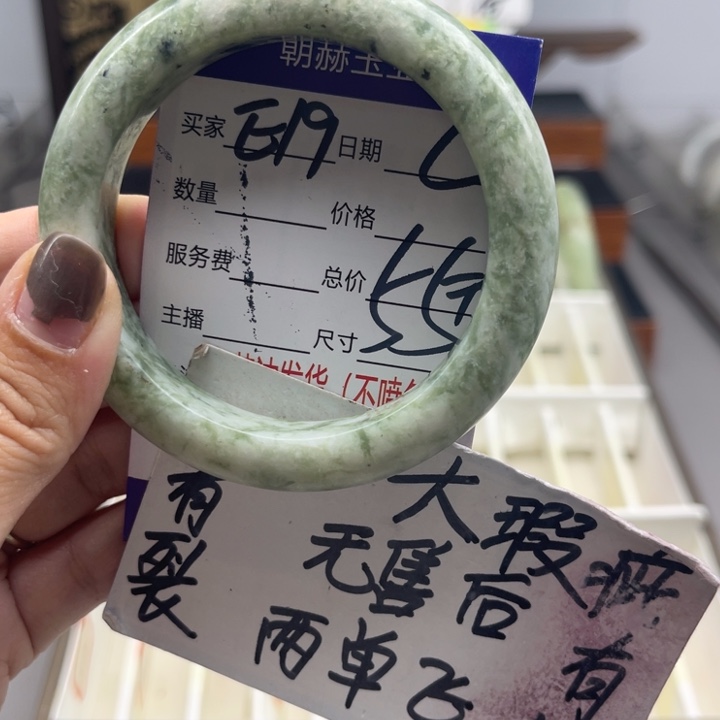 朝赫玉
买家 E19 日期
数量 价格
服务费 总价
主播 尺寸
发货（不喷
有 大 瑕疵
裂 无售后 有
两单飞